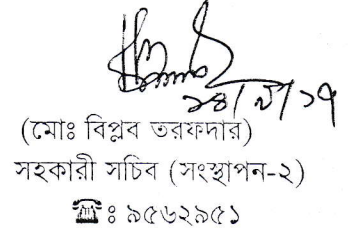 ২৪/৫/১৭
(মোঃ বিপ্লব তরফদার)
সহকারী সচিব (সংস্থাপন-২)
☎ঃ ৯৫৬২৯৫১